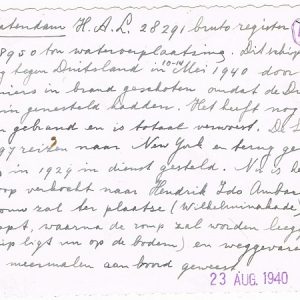 tatendam H.A.L. 28291 bruto register
8950 ton waterverplaatsing. Dit schip
tegen Duitsland in 10-14 Mei 1940 door
niers in brand geschoten omdat de Du
in genesteld hadden. Het heeft nog
en gebrand en is totaal verwoest. De S
97 reizen naar New York en terug ge
s in 1929 in dienst gesteld. Nu is he
oop verkocht naar Hendrik Ido Ambac
zal ter plaatse (Wilhelminakade)
opt, waarna de romp zal worden leegg
ip ligt nu op de bodem) en weggevare
meermalen aan boord geweest
23 AUG. 1940